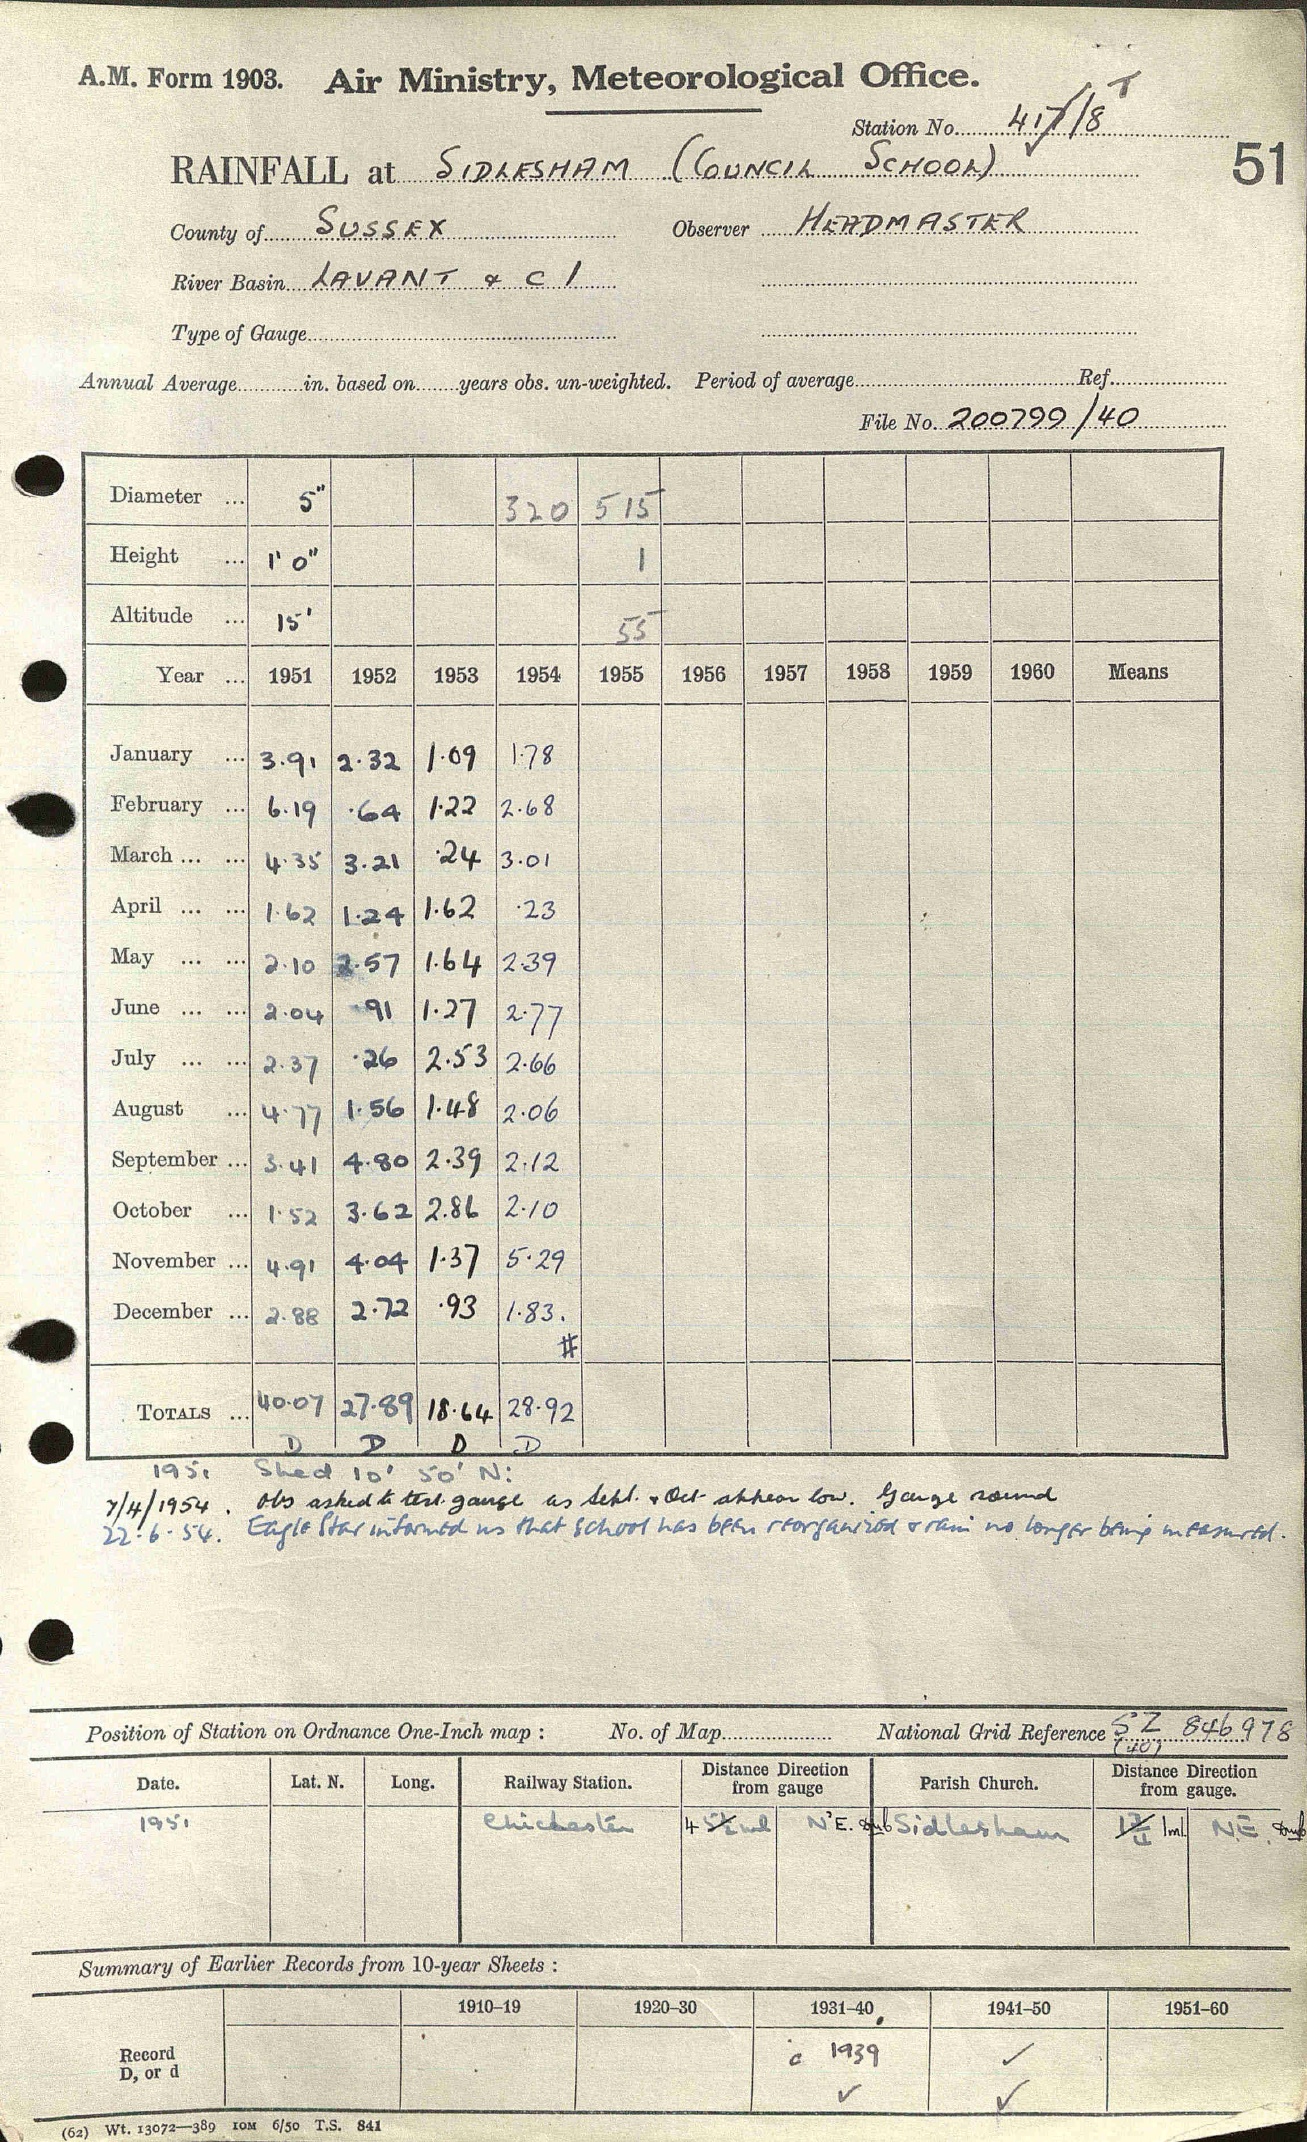 A.M. Form 1903. Air Ministry, Meteorological Office.
Station No. 417/8 T
RAINFALL at SIDLESHAM (COUNCIL SCHOOL)
51
County of SUSSEX Observer HEADMASTER
River Basin LAVANT & C 1
Type of Gauge
Annual Average in. based on years obs. un-weighted. Period of average Ref.
File No. 200799/40
Diameter ... 5" 320 515
Height ... 1' 0" 1
Altitude ... 15' 55
Year ... 1951 1952 1953 1954 1955 1956 1957 1958 1959 1960 Means
January ... 3.91 2.32 1.09 1.78
February ... 6.19 .64 1.22 2.68
March ... ... 4.35 3.21 .24 3.01
April ... ... 1.62 1.24 1.62 .23
May ... ... 2.10 2.57 1.64 2.39
June ... ... 2.04 .91 1.27 2.77
July ... ... 2.37 .26 2.53 2.66
August ... 4.77 1.56 1.48 2.06
September ... 3.41 4.80 2.39 2.12
October ... 1.52 3.62 2.86 2.10
November ... 4.91 4.04 1.37 5.29
December ... 2.88 2.72 .93 1.83.
#
TOTALS ... 40.07 27.89 18.64 28.92
D D D D
1951 Shed 10' 50' N:
7/4/1954. Obs asked to test gauge as Sept. & Oct appear low. Gauge sound
22.6.54. Eagle Star informed us that school has been reorganized & rain no longer being measured.
Position of Station on Ordnance One-Inch map : No. of Map National Grid Reference SZ 846978
(40)
Date. Lat. N. Long. Railway Station. Distance Direction from gauge Parish Church. Distance Direction from gauge.
1951 Chichester 4 5½ ml N'E. Sidlesham 1ml N.E.
Summary of Earlier Records from 10-year Sheets :
1910–19 1920–30 1931–40 1941–50 1951–60
Record D, or d c 1939 ✓
✓ ✓
(62) Wt. 13072—389 10M 6/50 T.S. 841